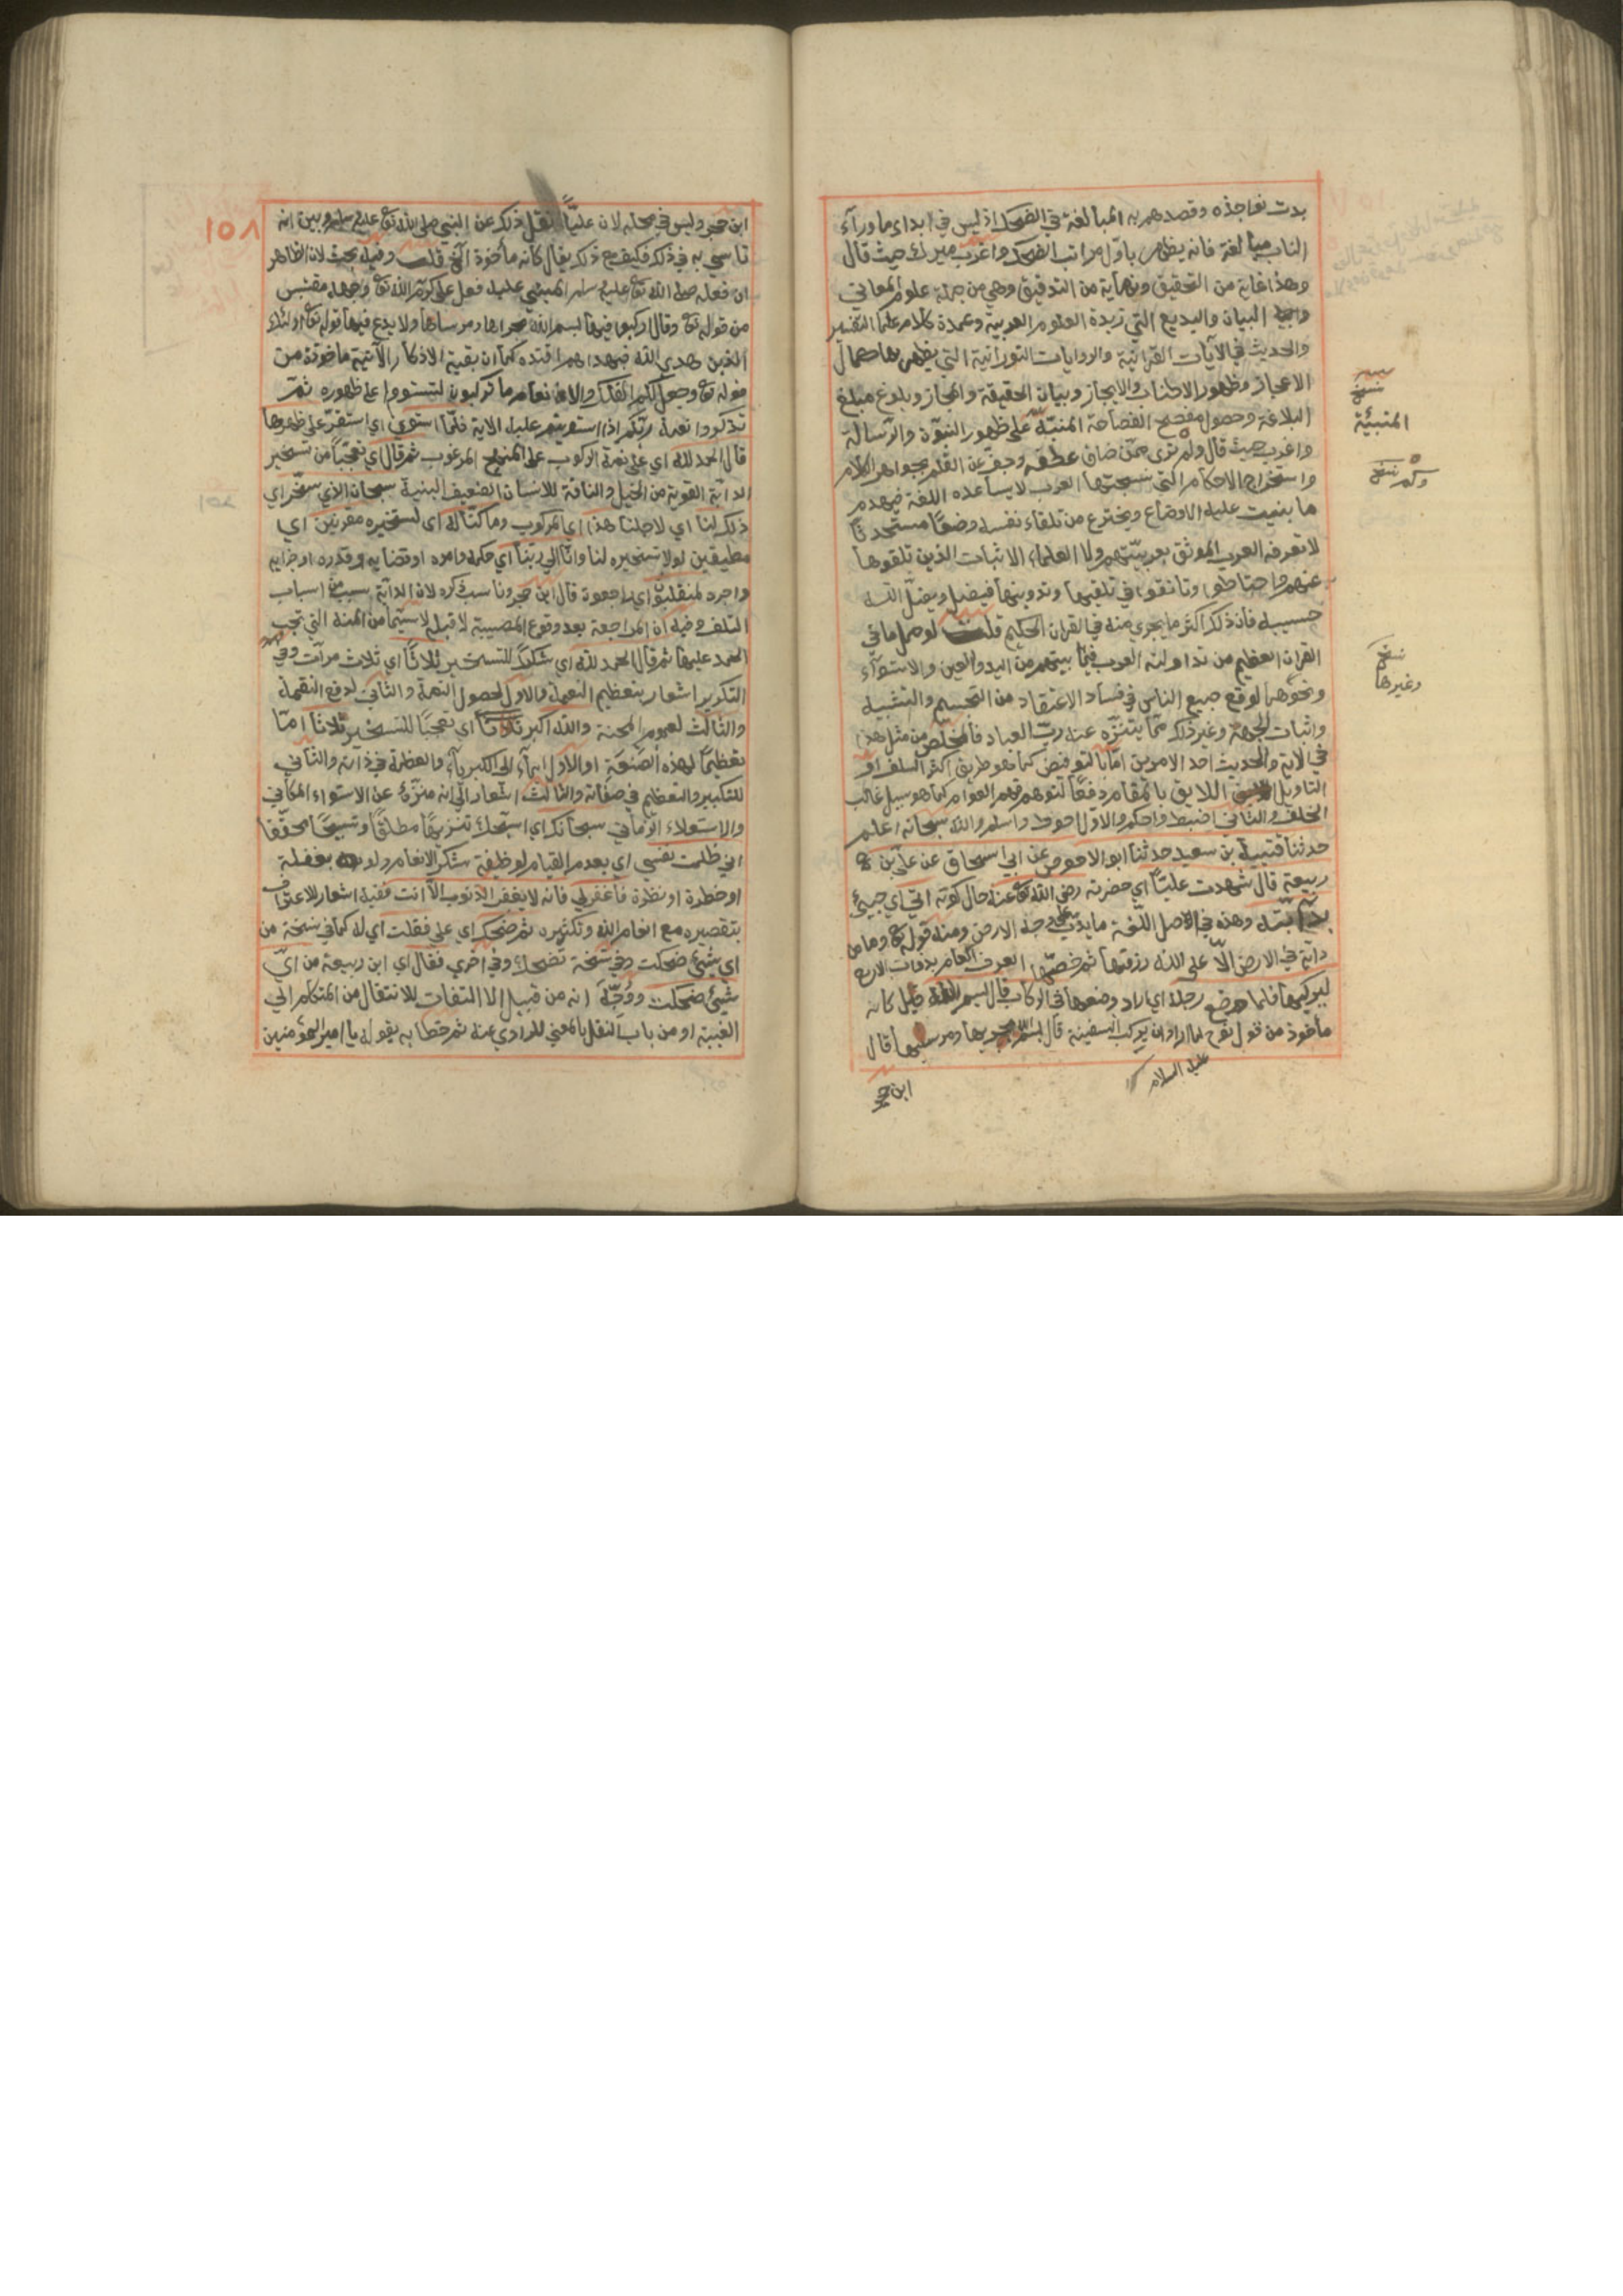 بدت نواجذه وقصدهم به المبالغة في الضحك اذ ليس في ابداء ما وراء
الناب مبالغة فانه يظهر باول مراتب الضحك واغرب ميرك حيث قال
وهذا غاية من التحقيق ونهاية من التدقيق وهي من جملة علوم المعاني
البيان والبديع التي زبدة العلوم العربية وعمدة كلام علماء التفسير
والحديث في الآيات القرآنية والروايات النورانية التي يظهر بها جمال
الاعجاز وظهور الاطناب والايجاز وبيان الحقيقة والمجاز وبلوغ مبلغ
البلاغة وحصول مفصح الفصاحة المنبئة على ظهور النبوة والرسالة
واغرب حيث قال ولم ترى ممن ضاق عطفه وجف عن القلم بجواهر الكلام
واستخراج الاحكام التي نسجتها العرب لا يساعده اللغة فيهدم
ما بنيت عليه الاوضاع ويخترع من تلقاء نفسه وضعا مستحدثا
لا تعرفه العرب الموثق بعربيتهم ولا العلماء الاثبات الذين تلقوها
عنهم واحتاطوا وتأنقوا في تلقيها وتدوينها فيضل ويضل الله
حسيبه فان ذلك اكثر ما يجري منه في القران الحكيم قلت لو حمل ما في
القران العظيم من تداولته العرب فيما بينهم من اليد والعين والاستواء
ونحوها لوقع جميع الناس في فساد الاعتقاد من التجسيم والتشبيه
واثبات الجهة وغير ذلك مما يتنزه عنه رب العباد فالمخلص من مثل هذا
في الاية والحديث احد الامرين اما بالتفويض كما هو طريق اكثر السلف او
التاويل اللايق بالمقام دفعا لتوهم فهم العوام كما هو سبيل غالب
الخلف والثاني اضبط واحكم والاول احوط واسلم والله سبحانه اعلم
حدثنا قتيبة بن سعيد حدثنا ابو الاحوص عن ابي اسحاق عن علي بن
ربيعة قال شهدت عليا اي حضرته رضي الله تع عنه حال كونه اتي اي جيئ
بدابته وهذه في الاصل اللغة ما يدب على وجه الارض ومنه قوله تع وما من
دابة في الارض الا على الله رزقها ثم خصها العرف العام بذوات الاربع
ليركبها فلما وضع رجله اي اراد وضعها في الركاب قال بسم الله قيل كانه
مأخوذ من قول نوح لما اراد ان يركب السفينة قال بسم الله مجريها ومرسيها قال
عليه السلام
ابن حجر
نسخ
المنبئية
وكم نسخ
نسخ
وغيرها
١٥٨
ابن حجر وليس في محله لان عليا نقل ذلك عن النبي صلى الله تع عليه وسلم وبين انه
تاسي به في ذلك فكيف مع ذلك يقال كانه مأخوذة الخ قلت وفيه بحث لان الظاهر
ان فعله صلى الله تع عليه وسلم المبني عليه فعل علي كرم الله تع وجهه مقتبس
من قوله تع وقال اركبوا فيها بسم الله مجراها ومرساها ولا بدع فيها قوله تع اولئك
الذين هدي الله فبهداهم اقتده كما ان بقية الاذكار الآتية ماخوذة من
قوله تع وجعل لكم من الفلك والانعام ما تركبون لتستووا على ظهوره ثم
تذكروا نعمة ربكم اذا استويتم عليه الاية فلما استوى اي استقر على ظهرها
قال الحمد لله اي على نعمة الركوب على المنهج المرغوب ثم قال اي تعجبا من تسخير
الدابة القوية من الخيل والناقة للانسان الضعيف البنية سبحان الذي سخر اي
ذلك لنا اي لاجلنا هذا اي المركوب وما كنا له اي لتسخيره مقرنين اي
مطيقين لولا تسخيره لنا وانا الي ربنا اي حكمه وامره او قضايه وقدره او جزايه
واجره لمنقلبون اي راجعون قال ابن حجر وناسب ذكره لان الدابة سبب من اسباب
التلف وفيه ان المراجعة بعد وقوع المصيبة لا قبلها لا سيما من المنة التي تجب
الحمد عليها ثم قال الحمد لله اي شكرا للتسخير ثلاثا اي ثلاث مرات وفي
التكرير اشعار بتعظيم النعمة والاول لحصول النعمة والثاني لدفع النقمة
والثالث لعموم المحنة والله اكبر ثلاثا اي تعجبا للتسخير ثلاثا اما
تعظيما لهذه الصنعة او الاول ايماء الى الكبرياء والعظمة في ذاته والثاني
للتكبير والتعظيم في صفاته والثالث اشعار الى انه منزه عن الاستواء المكاني
والاستعلاء الزماني سبحانك اي اسبحك تنزيها مطلقا وتسبيحا محققا
اني ظلمت نفسي اي بعدم القيام لوظيفة شكر الانعام ولو بغفلة
او خطرة او نظرة فاغفرلي فانه لا يغفر الذنوب الا انت ففيه اشعار للاعتراف
بتقصيره مع انعام الله وتكثيره ثم ضحك اي علي فقلت اي له كما في نسخة من
اي شيئ ضحكت وفي نسخة تضحك وفي اخري فقال اي ابن ربيعة من اي
شيئ ضحكت ووجه انه من قبيل الالتفات للانتقال من المتكلم الي
الغيبة او من باب النقل بالمعني للراوي عنه ثم خطابه بقوله يا امير المؤمنين